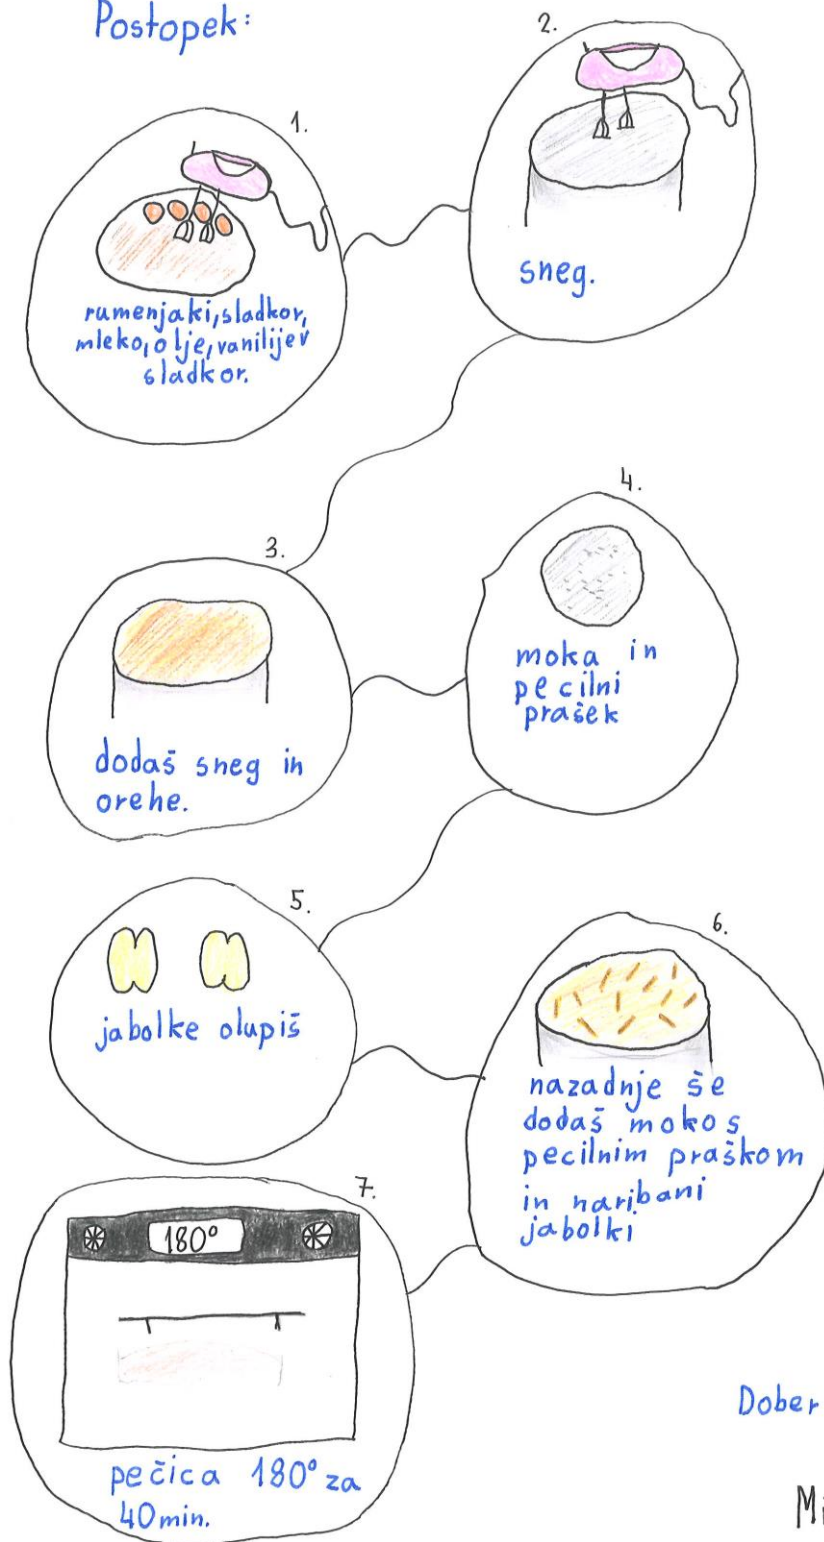 Postopek:
1.
rumenjaki, sladkor,
mleko, olje, vanilijev
sladkor.
2.
sneg.
3.
dodaš sneg in
orehe.
4.
moka in
pecilni
prašek
5.
jabolke olupiš
6.
nazadnje še
dodaš moko s
pecilnim praškom
in naribani
jabolki
7.
180°
pečica 180° za
40min.
Dober